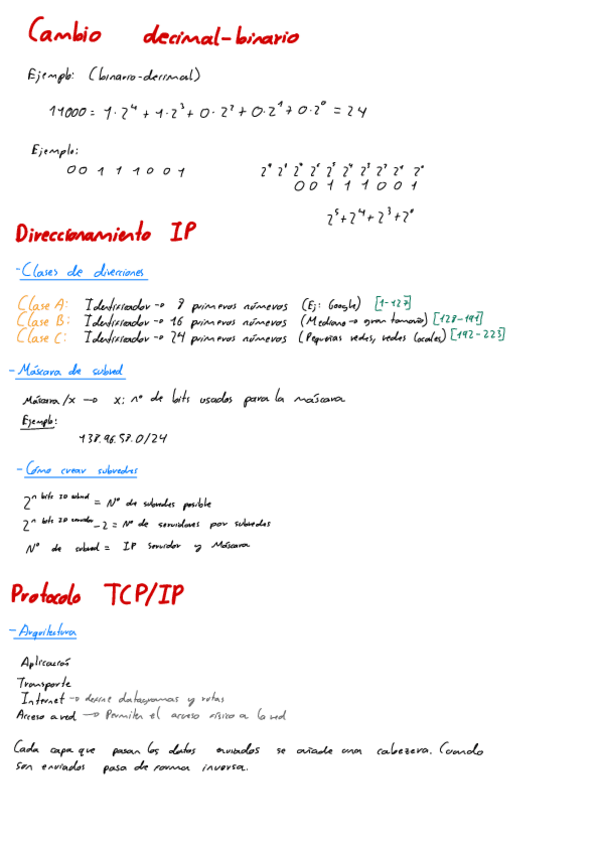 Cambio decimal-binario
Ejemplo: (binario-decimal)
11000 = 1·2⁴ + 1·2³ + 0·2² + 0·2¹ + 0·2⁰ = 24
Ejemplo:
0 0 1 1 1 0 0 1
2⁷ 2⁶ 2⁵ 2⁴ 2³ 2² 2¹ 2⁰
0 0 1 1 1 0 0 1
2⁵ + 2⁴ + 2³ + 2⁰
Direccionamiento IP
- Clases de direcciones
Clase A: Identificador → 8 primeros números (Ej: Google) [1-127]
Clase B: Identificador → 16 primeros números (Mediano → gran tamaño) [128-191]
Clase C: Identificador → 24 primeros números (Pequeñas redes, redes locales) [192-223]
- Máscara de subred
Máscara /x → x: nº de bits usados para la máscara
Ejemplo:
138.96.58.0/24
- Cómo crear subredes
2^(n bits ID subred) = Nº de subredes posible
2^(n bits ID servidor) - 2 = Nº de servidores por subredes
Nº de subred = IP servidor y Máscara
Protocolo TCP/IP
- Arquitectura
Aplicación
Transporte
Internet → define datagramas y rutas
Acceso a red → Permiten el acceso físico a la red
Cada capa que pasan los datos enviados se añade una cabezera. Cuando
son enviados pasa de forma inversa.